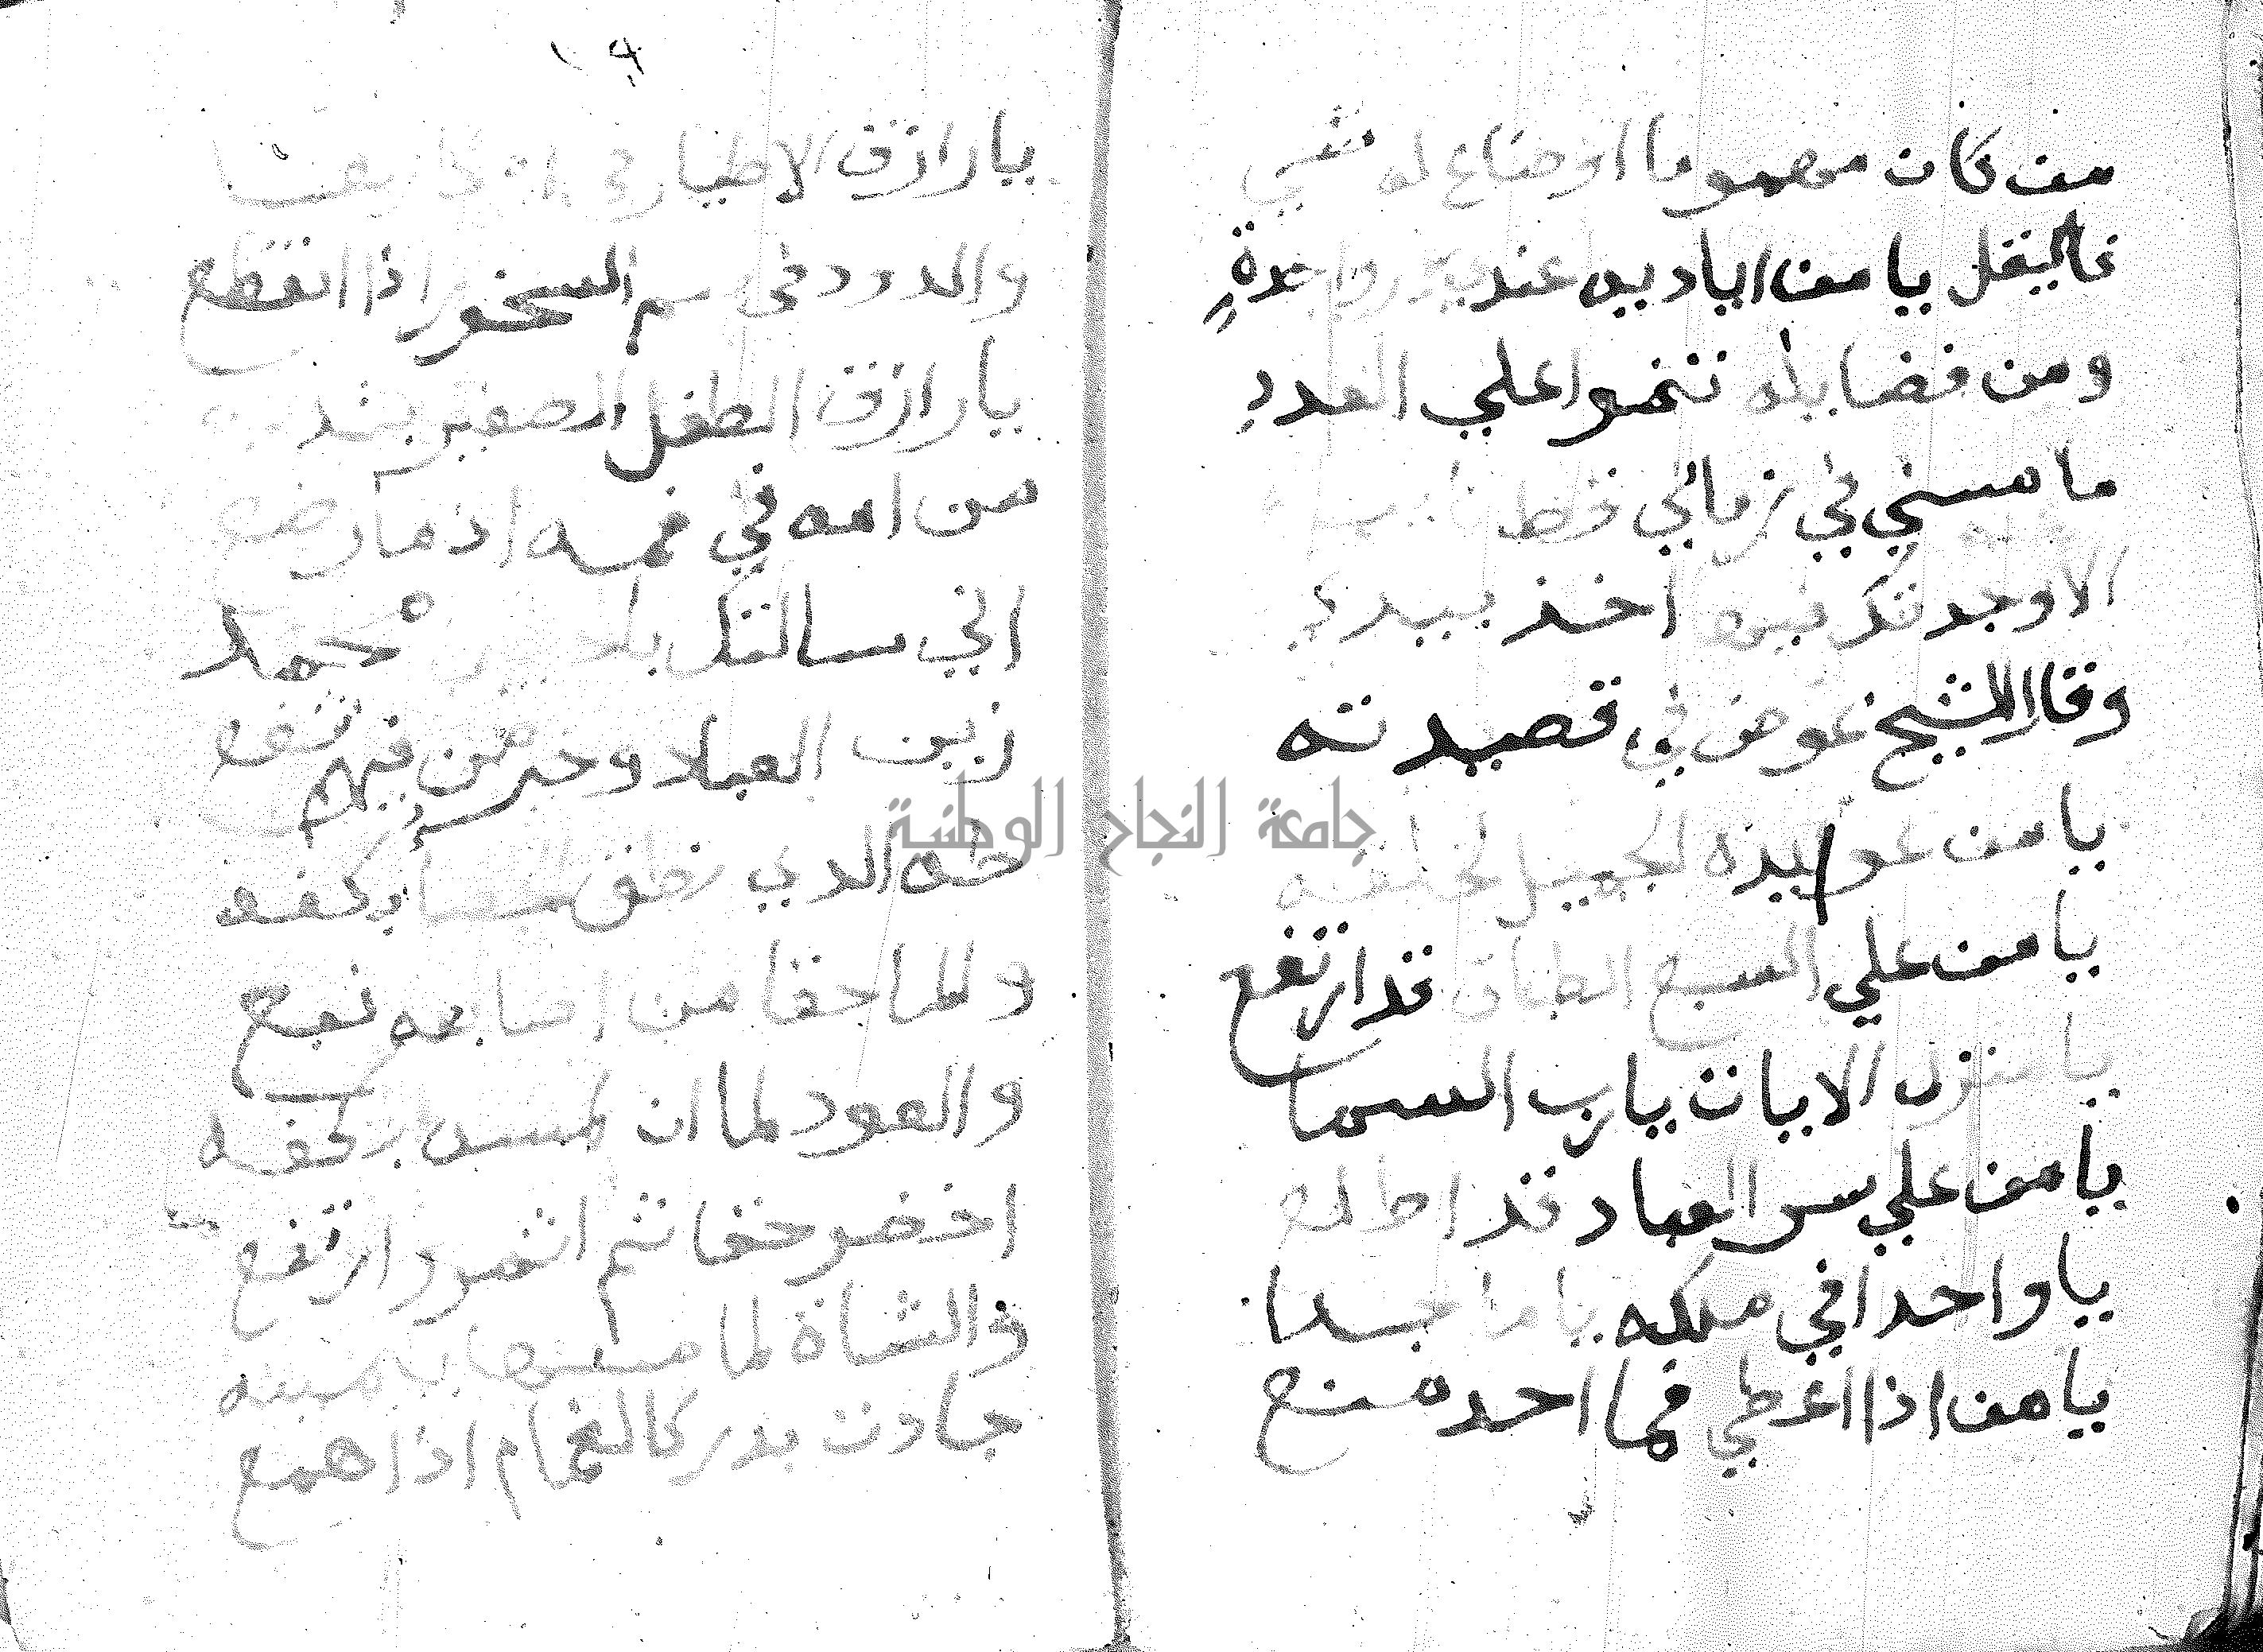 من كان مهموما او ضاع له شيي
فاليقل يا من اياديه عندي واحدةٍ
ومن فضايله تنموا علي العدد
ما مسني في زماني قط
الا وجدتك فيه اخذ بيدي
وقال الشيخ عوض في قصيدته
يا من عوايده الجميل لخلقه
يا من علي السبع الطباق قد ارتفع
يا منزل الايات يا رب السما
يا من علي سر العباد قد اطلع
يا واحدا في ملكه يا ماجدا
يا من اذا اعطي فما احد منع
١٩
يا رازق الاطيار في
والدود في سم الصخور اذا انقطع
يا رازق الطفل الصغير بثدي
من امه في فمه اذ ما رضع
اني سالتك محمد
زين العباد وخير من فيهم شفع
طه الذي نطق الحصا بكفه
والما حقا من اصابعه نبع
والعود لما ان لمس بكفه
اخضر حقا ثم اثمر وارتفع
والشاة لما مسها بيمينه
جادت بدر كالغمام اذا همع
جامعة النجاح الوطنية